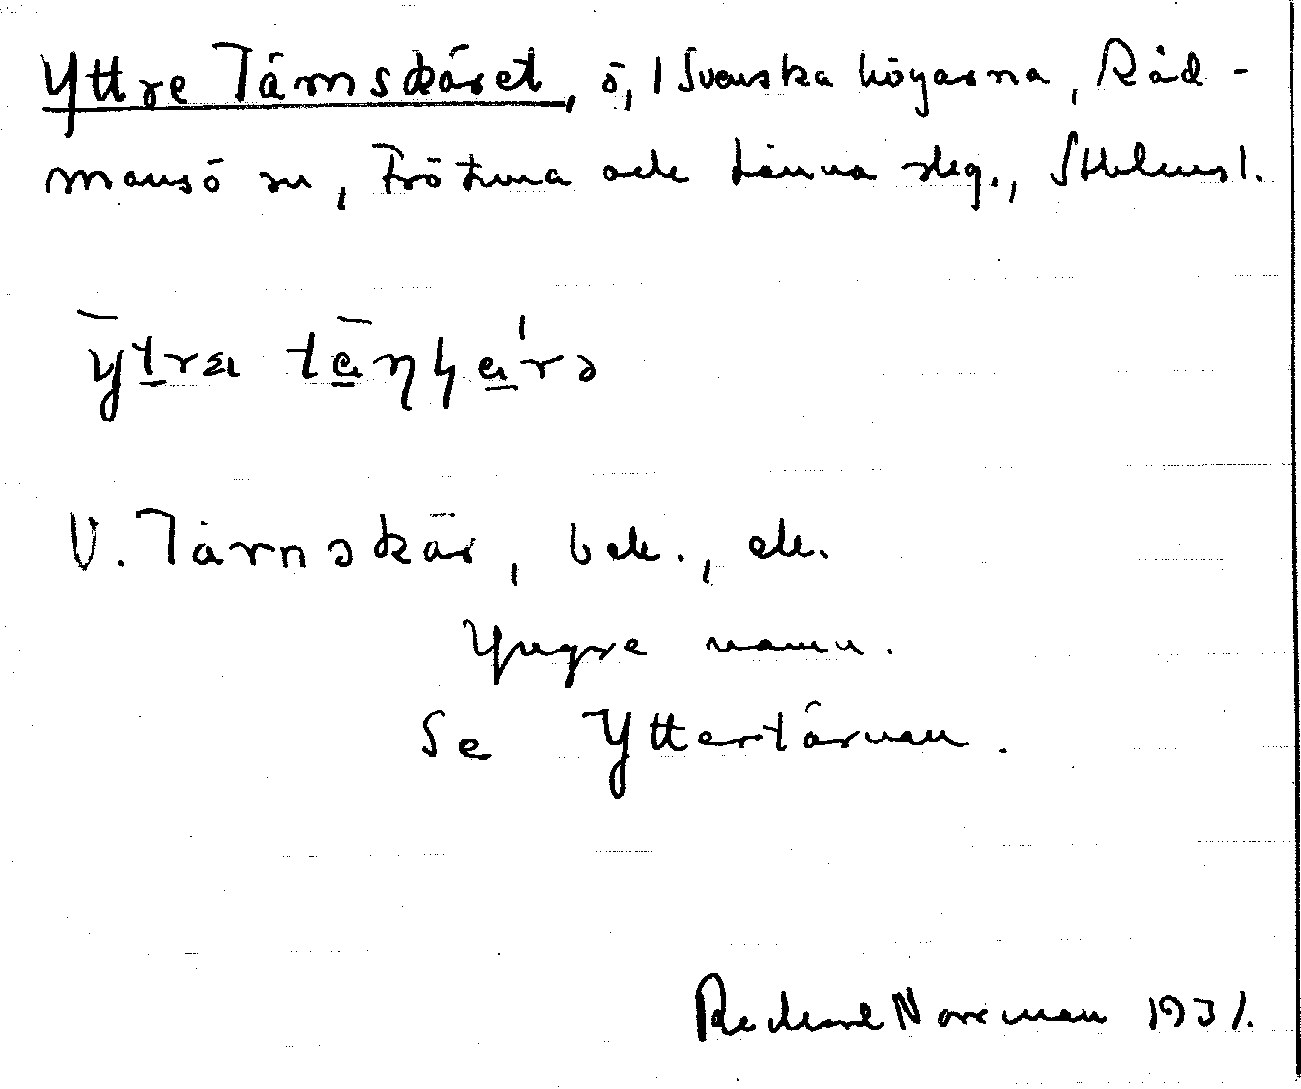 Yttre Tärnskäret, ö, I Svenska högarna, Råd-
mansö sn, Frötuna och Länna skg., Sthlms l.
ȳtra täŋʂä'rə
V. Tärnskär, bek., ek.
Yngre namn.
Se Yttertärnan.
Richard Norrman 1931.